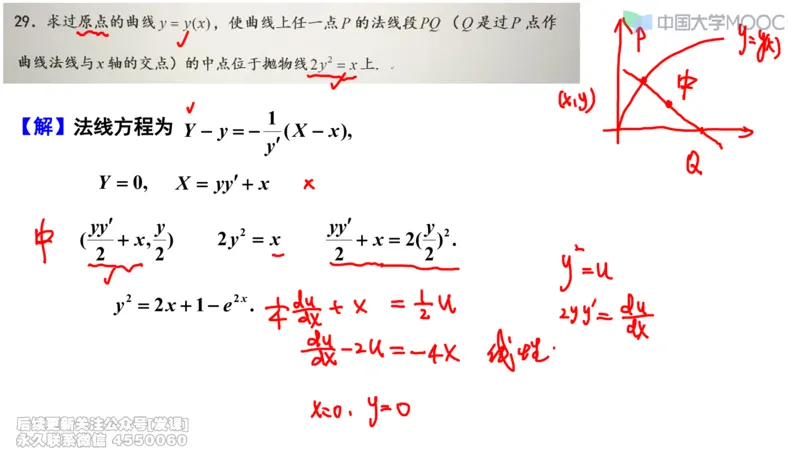 中国大学MOOC
29. 求过原点的曲线 y = y(x)，使曲线上任一点P的法线段PQ（Q是过P点作
曲线法线与x轴的交点）的中点位于抛物线2y² = x上.
P
y=y(x)
(x,y)
中
Q
【解】法线方程为 Y − y = − 1/y′ (X − x),
Y = 0, X = yy′ + x
中 (yy′/2 + x, y/2) 2y² = x yy′/2 + x = 2(y/2)².
y² = 2x + 1 − e²ˣ.
y² = u
2yy′ = du/dx
1/4 du/dx + x = 1/2 u
du/dx − 2u = −4x 线性.
x=0, y=0
后续更新关注公众号[发课]
永久联系微信 4550060